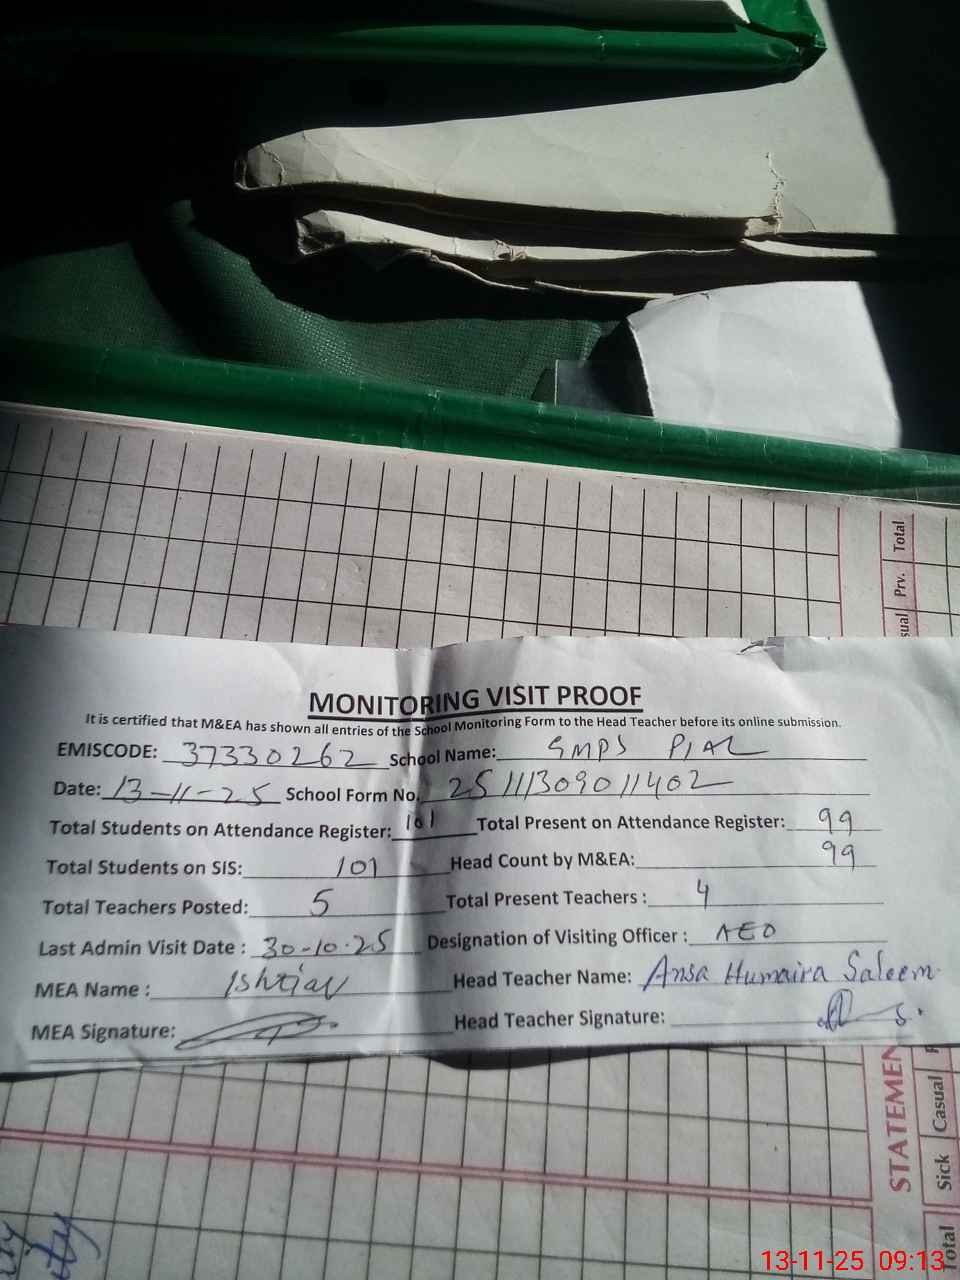 sual Prv. Total
MONITORING VISIT PROOF
It is certified that M&EA has shown all entries of the School Monitoring Form to the Head Teacher before its online submission.
EMISCODE: 37330262 School Name: GMPS PIAL
Date: 13-11-25 School Form No. 25111309011402
Total Students on Attendance Register: 101 Total Present on Attendance Register: 99
Total Students on SIS: 101 Head Count by M&EA: 99
Total Teachers Posted: 5 Total Present Teachers : 4
Last Admin Visit Date : 30-10-25 Designation of Visiting Officer : AEO
MEA Name : Ishtiaq Head Teacher Name: Ansa Humaira Saleem
MEA Signature: Head Teacher Signature:
STATEMEN
Total Sick Casual
13-11-25 09:13